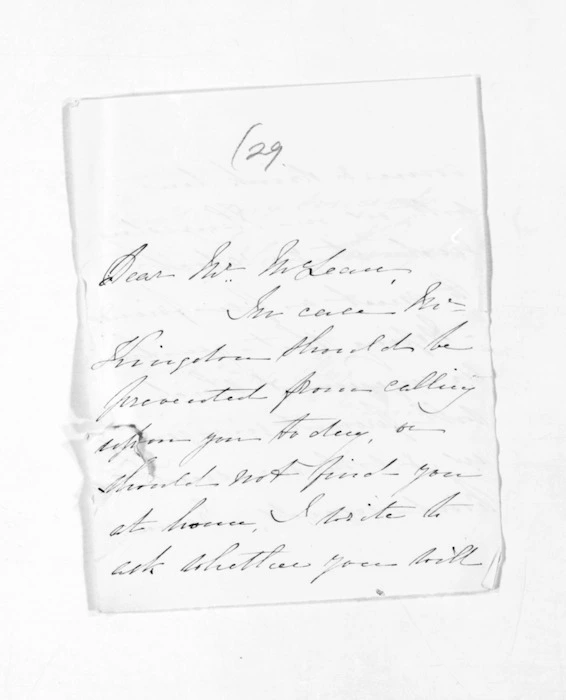 (29.
Dear Mr. McLean,
In case Mr
Kingdon should be
prevented from calling
upon you to day, or
should not find you
at home, I write to
ask whether you will